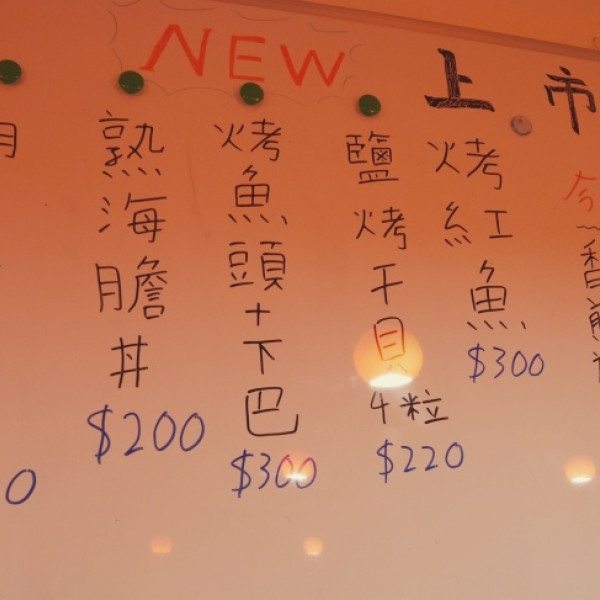 NEW
上市
熟海膽丼
$200
烤魚頭+下巴
$300
鹽烤干貝4粒
$220
烤紅魚
$300
今
香煎
月
0